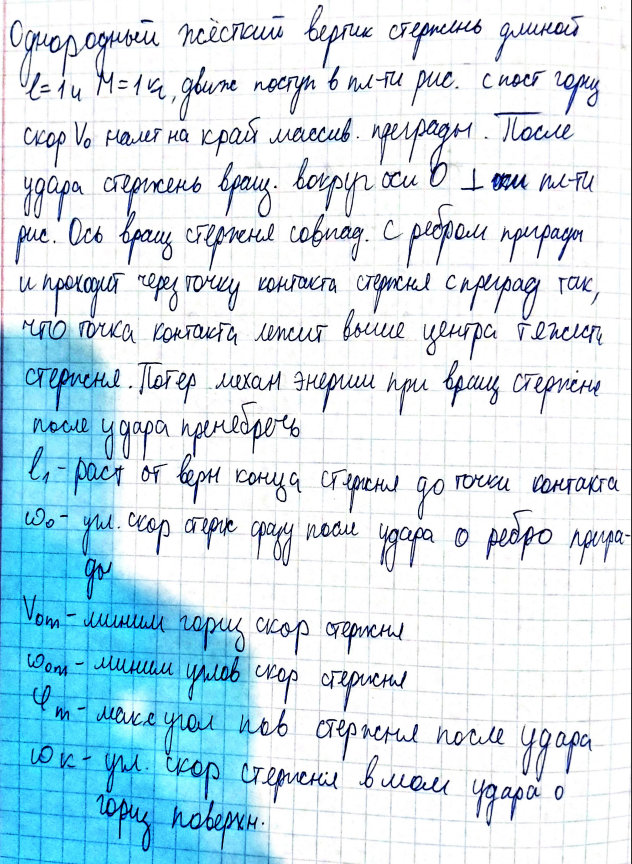 Однородный жёсткий вертик стержень длиной
l=1м M=1кг, движ поступ в пл-ти рис. с пост гориз
скор V₀ налет на край массив. преграды. После
удара стержень вращ. вокруг оси О ⊥ пл-ти
рис. Ось вращ стержня совпад. с ребром приграды
и проходит через точку контакта стержня с преград так,
что точка контакта лежит выше центра тяжести
стержня. Потер механ энергии при вращ стержня
после удара пренебречь
l₁ - раст от верн конца стержня до точки контакта
ω₀ - угл. скор стерж сразу после удара о ребро прigra-
ды
V₀m - миним гориз скор стержня
ω₀m - миним углов скор стержня
φm - макс угол пов стержня после удара
ωк - угл. скор стержня в мом удара о
гориз поверхн.